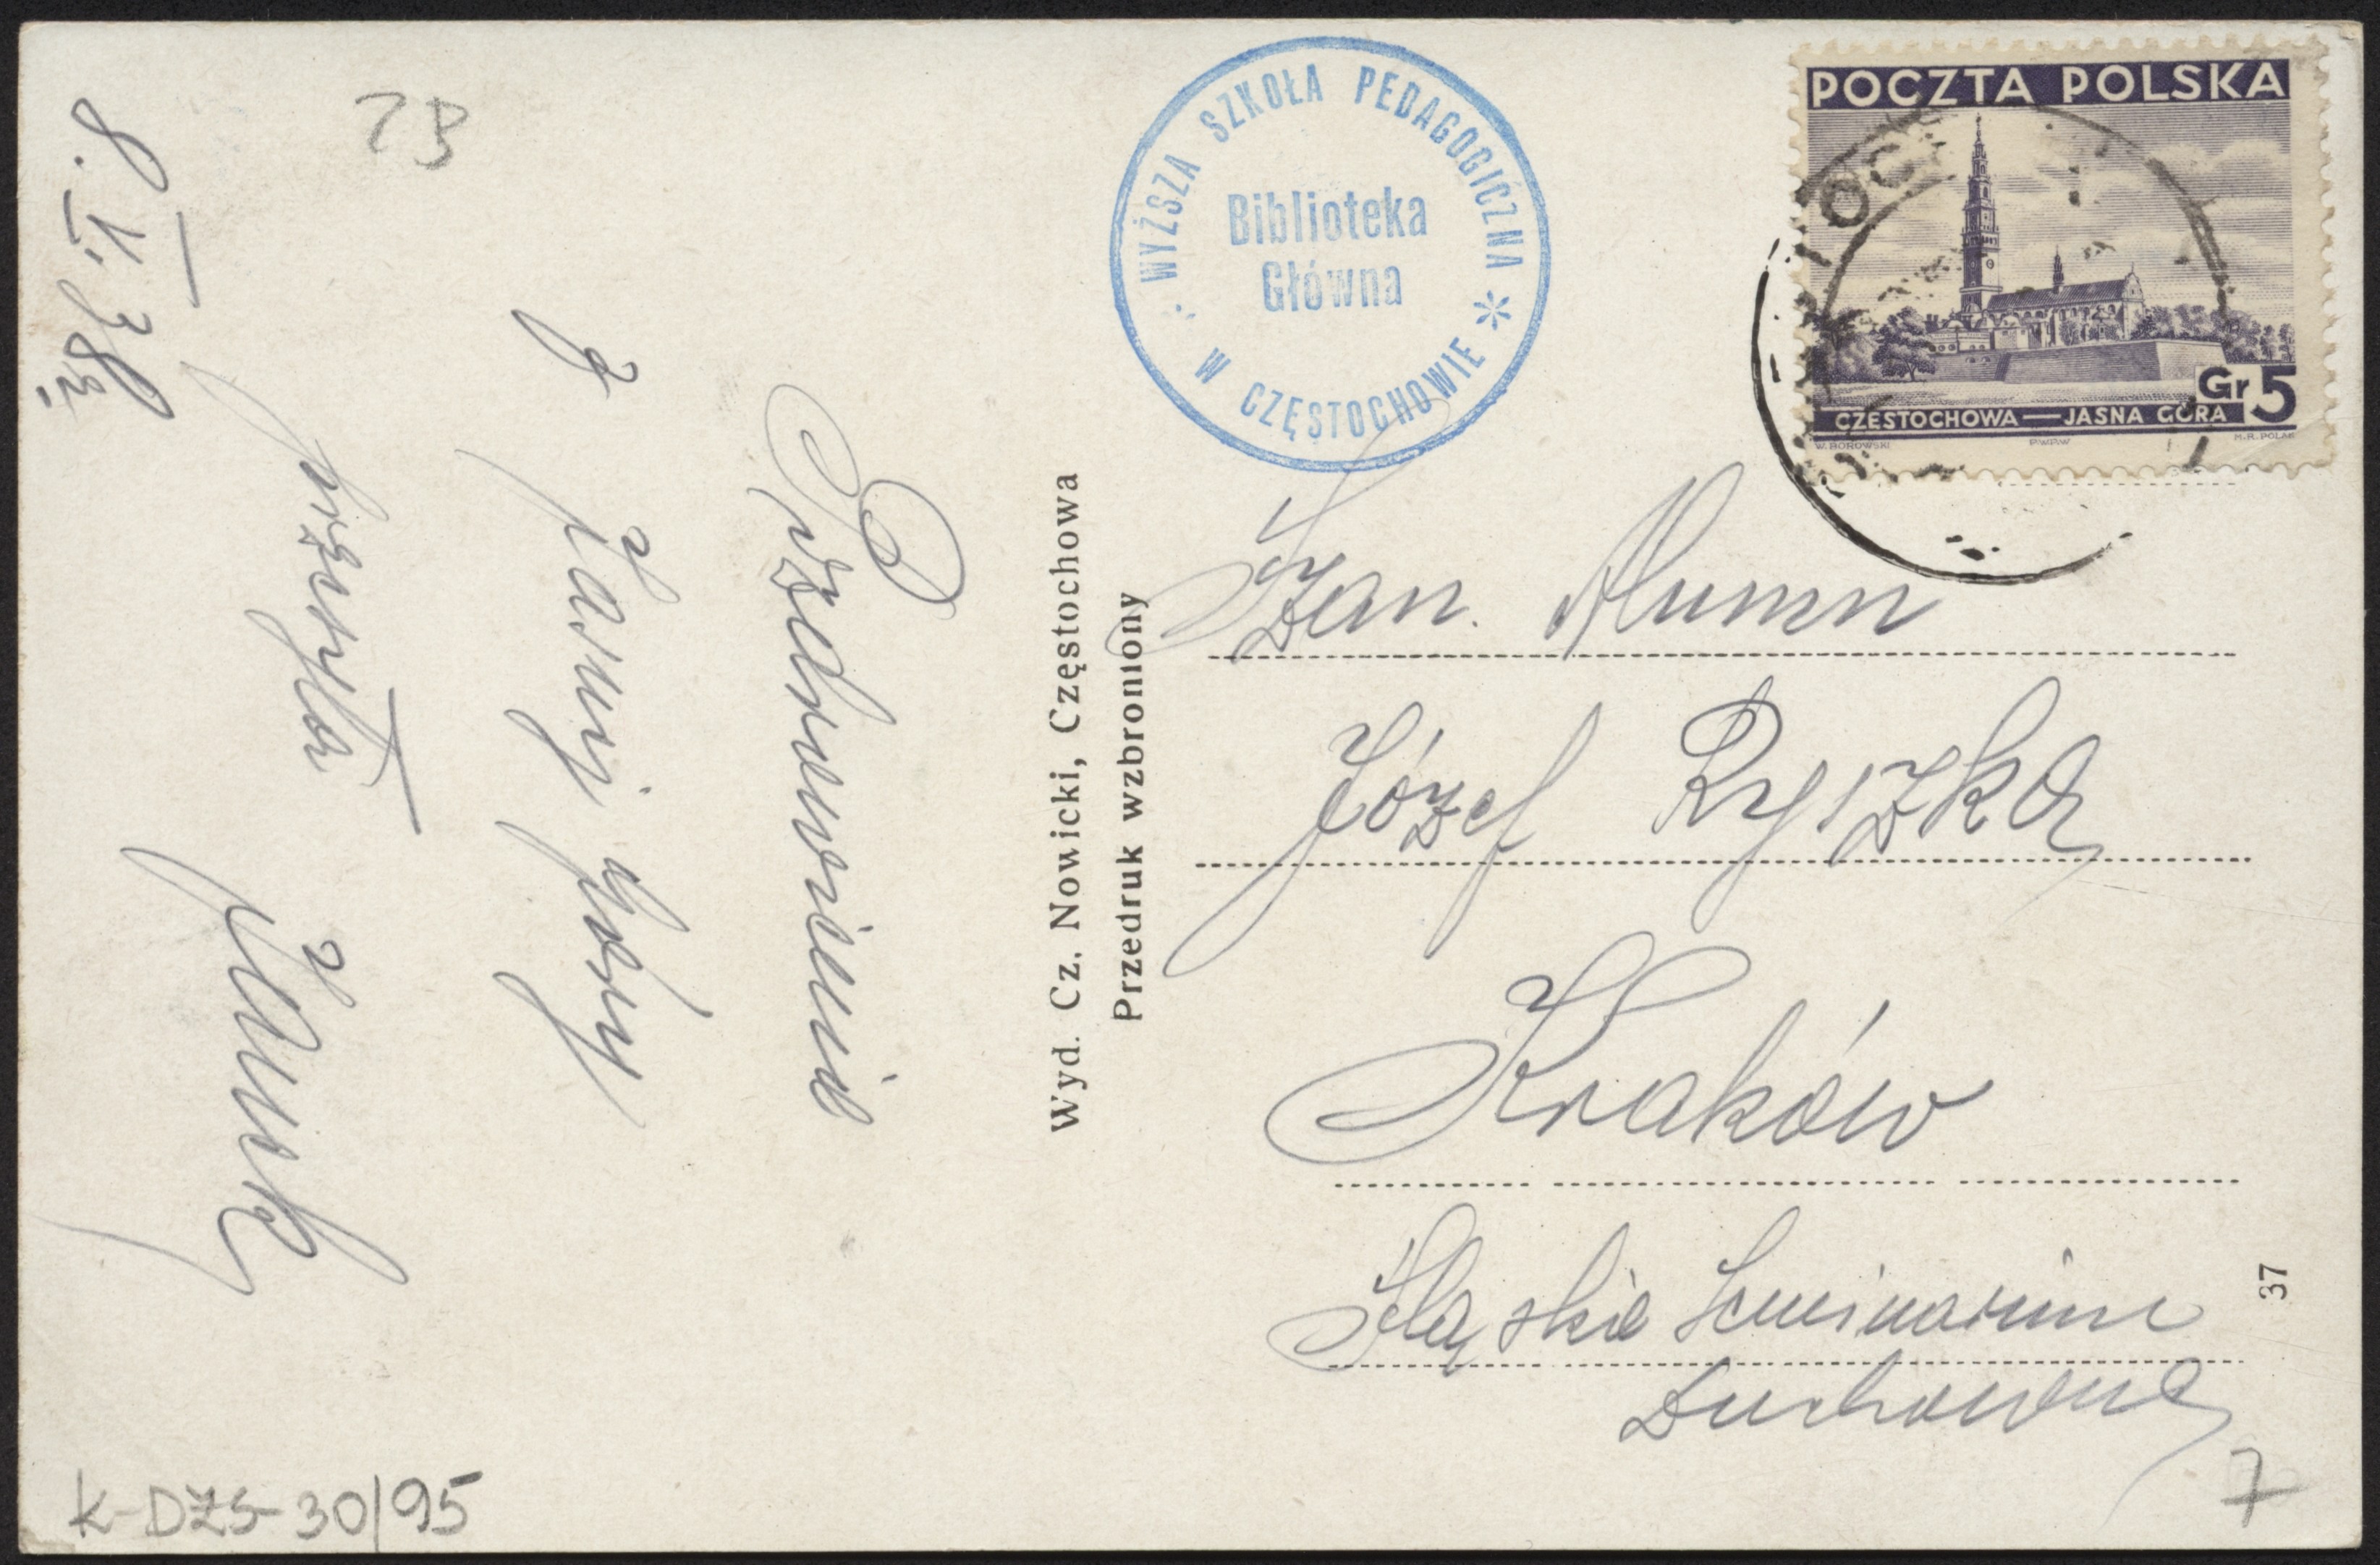 8. V. 38 r.
23
Pozdrowienie
z Jasnej Góry
przesyła
Wyd. Cz. Nowicki, Częstochowa
Przedruk wzbroniony
WYŻSZA SZKOŁA PEDAGOGICZNA
W CZĘSTOCHOWIE
Biblioteka
Główna
POCZTA POLSKA
Gr 5
CZĘSTOCHOWA — JASNA GÓRA
W. BOROWSKI P.W.P.W. M.R. POLAK
Szan. Alumn
Józef Ryszka
Kraków
Śląskie Seminarium
Duchowne
37
7
K-DZS-30/95